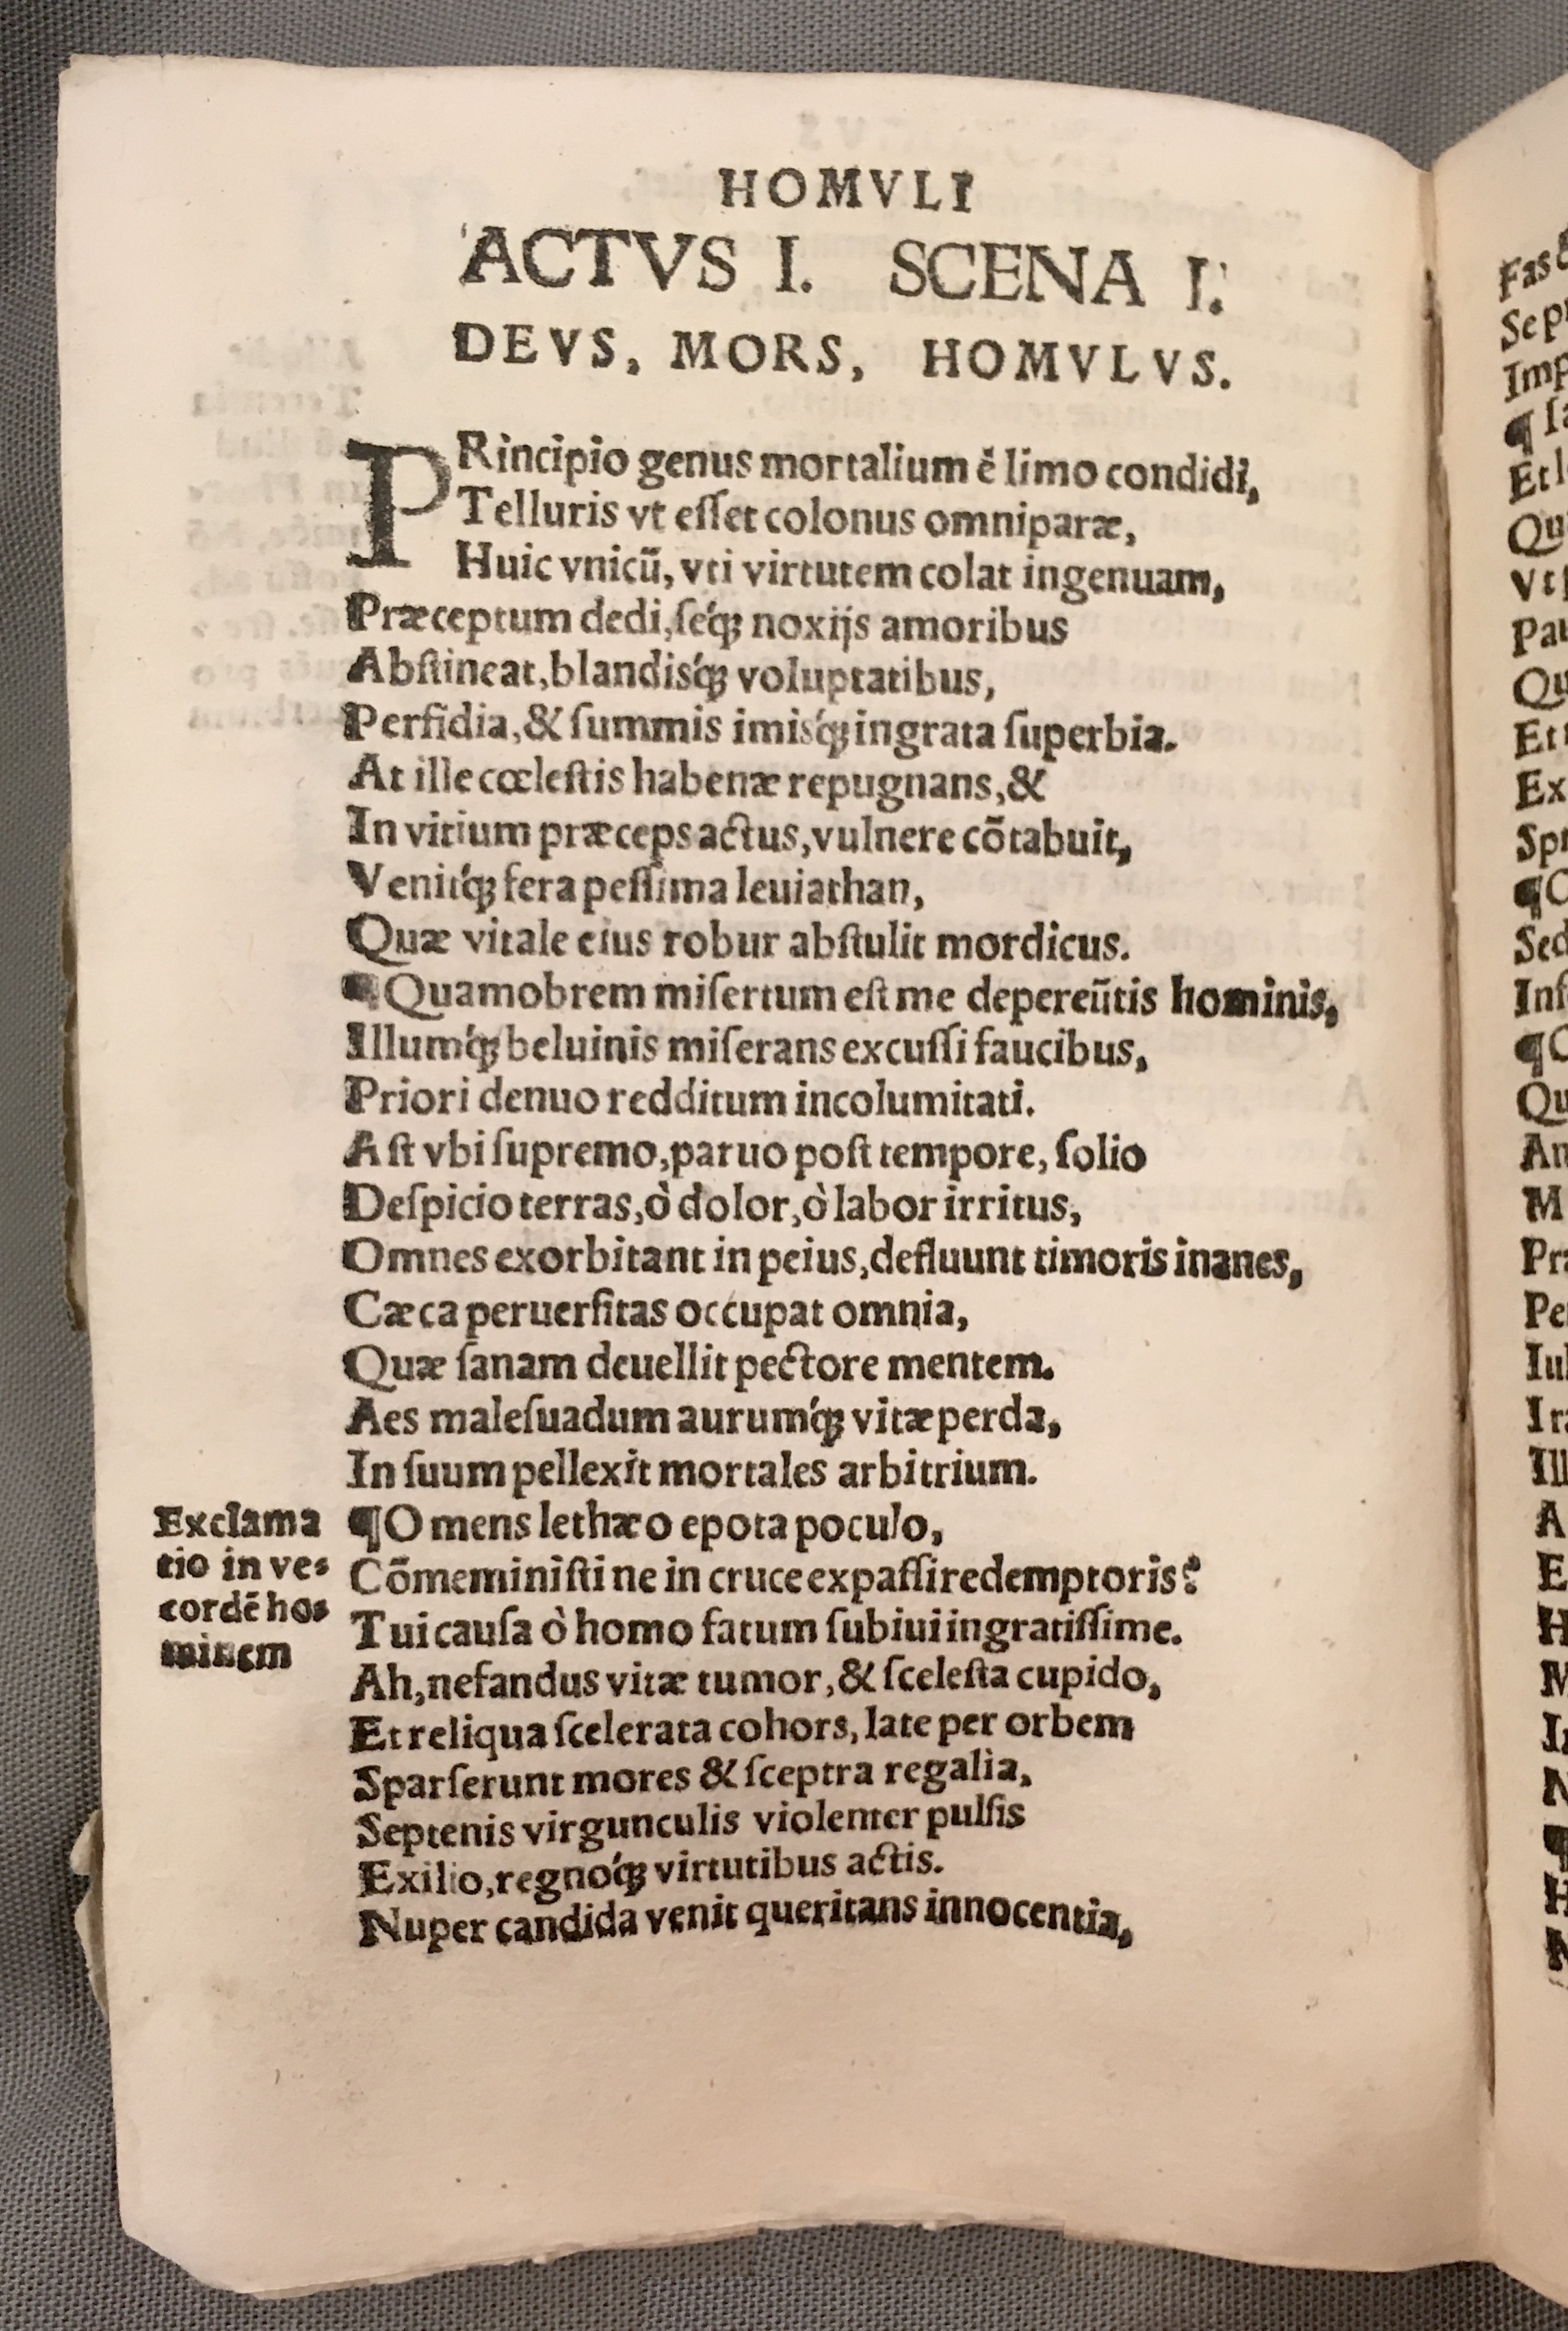 HOMVLI
ACTVS I. SCENA I.
DEVS, MORS, HOMVLVS.
PRincipio genus mortalium ẽ limo condidi,
Telluris vt eſſet colonus omniparæ,
Huic vnicũ, vti virtutem colat ingenuam,
Præceptum dedi, ſéq́; noxijs amoribus
Abſtineat, blandisq́; voluptatibus,
Perfidia, & ſummis imisq́; ingrata ſuperbia.
At ille cœleſtis habenæ repugnans, &
In vitium præceps actus, vulnere cõtabuit,
Venitq́; fera peſſima leuiathan,
Quæ vitale eius robur abſtulit mordicus.
¶ Quamobrem miſertum eſt me depereũtis hominis,
Illumq́; beluinis miſerans excuſſi faucibus,
Priori denuo redditum incolumitati.
Aſt vbi ſupremo, paruo poſt tempore, ſolio
Deſpicio terras, ò dolor, ò labor irritus,
Omnes exorbitant in peius, defluunt timoris inanes,
Cæca peruerſitas occupat omnia,
Quæ ſanam deuellit pectore mentem.
Aes maleſuadum aurumq́; vitæ perda,
In ſuum pellexit mortales arbitrium.
Exclama
tio in ve-
cordẽ ho-
minem
¶ O mens lethæo epota poculo,
Cõmeminiſti ne in cruce expaſſi redemptoris?
Tui cauſa ò homo fatum ſubiui ingratiſſime.
Ah, nefandus vitæ tumor, & ſceleſta cupido,
Et reliqua ſcelerata cohors, late per orbem
Sparſerunt mores & ſceptra regalia,
Septenis virgunculis violenter pulſis
Exilio, regnoq́; virtutibus actis.
Nuper candida venit queritans innocentia,
Fas
Sep
Imp
¶
Et
Qu
Vt
Pau
Qu
Et
Ex
Sp
¶
Sed
Inf
¶
Qu
An
M
Pr
Pe
Iul
Ir
Ill
A
E
H
M
I
N
¶
H